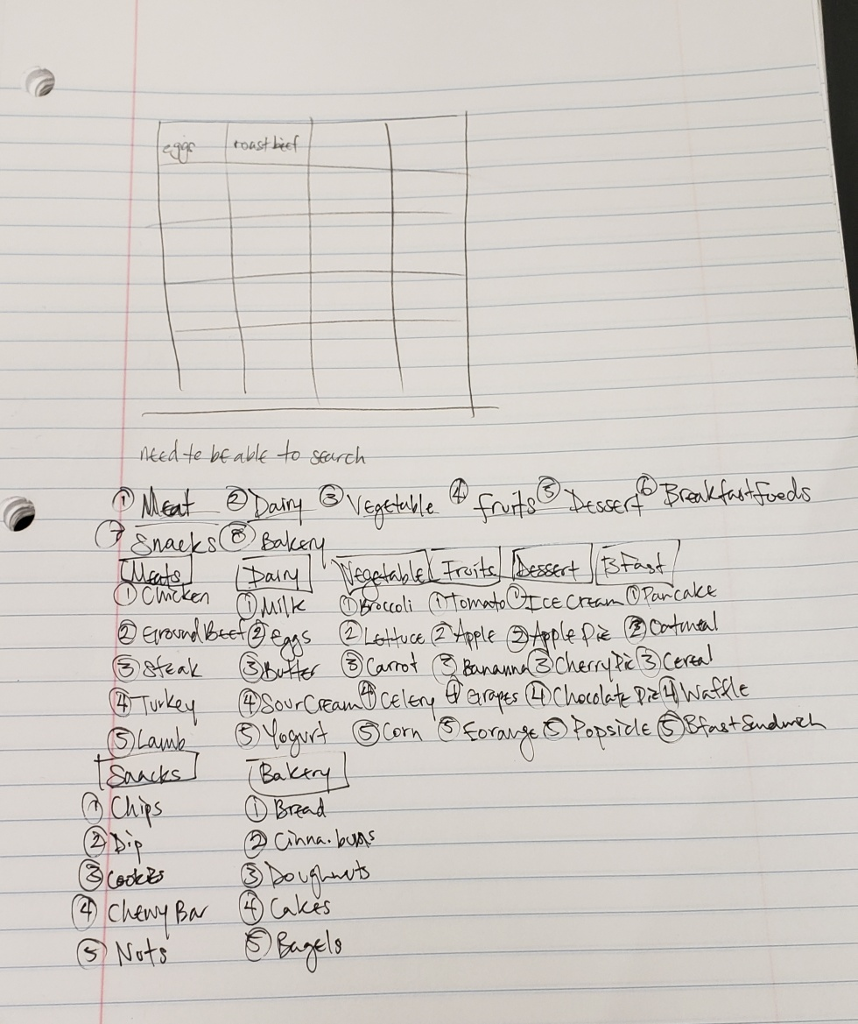 eggs roast beef
need to be able to search
① Meat ② Dairy ③ Vegetable ④ fruits ⑤ Dessert ⑥ Breakfast foods
⑦ Snacks ⑧ Bakery
Meats Dairy Vegetable Fruits Dessert BFast
① Chicken ① Milk ① Broccoli ① Tomato ① Ice Cream ① Pancake
② Ground Beef ② Eggs ② Lettuce ② Apple ② Apple Pie ② Oatmeal
③ Steak ③ Butter ③ Carrot ③ Bananna ③ Cherry Pie ③ Cereal
④ Turkey ④ Sour Cream ④ Celery ④ Grapes ④ Chocolate Pie ④ Waffle
⑤ Lamb ⑤ Yogurt ⑤ Corn ⑤ Eorange ⑤ Popsicle ⑤ Bfast Sandwich
Snacks Bakery
① Chips ① Bread
② Dip ② Cinna. buns
③ Cookies ③ Doughnuts
④ Chewy Bar ④ Cakes
⑤ Nuts ⑤ Bagels